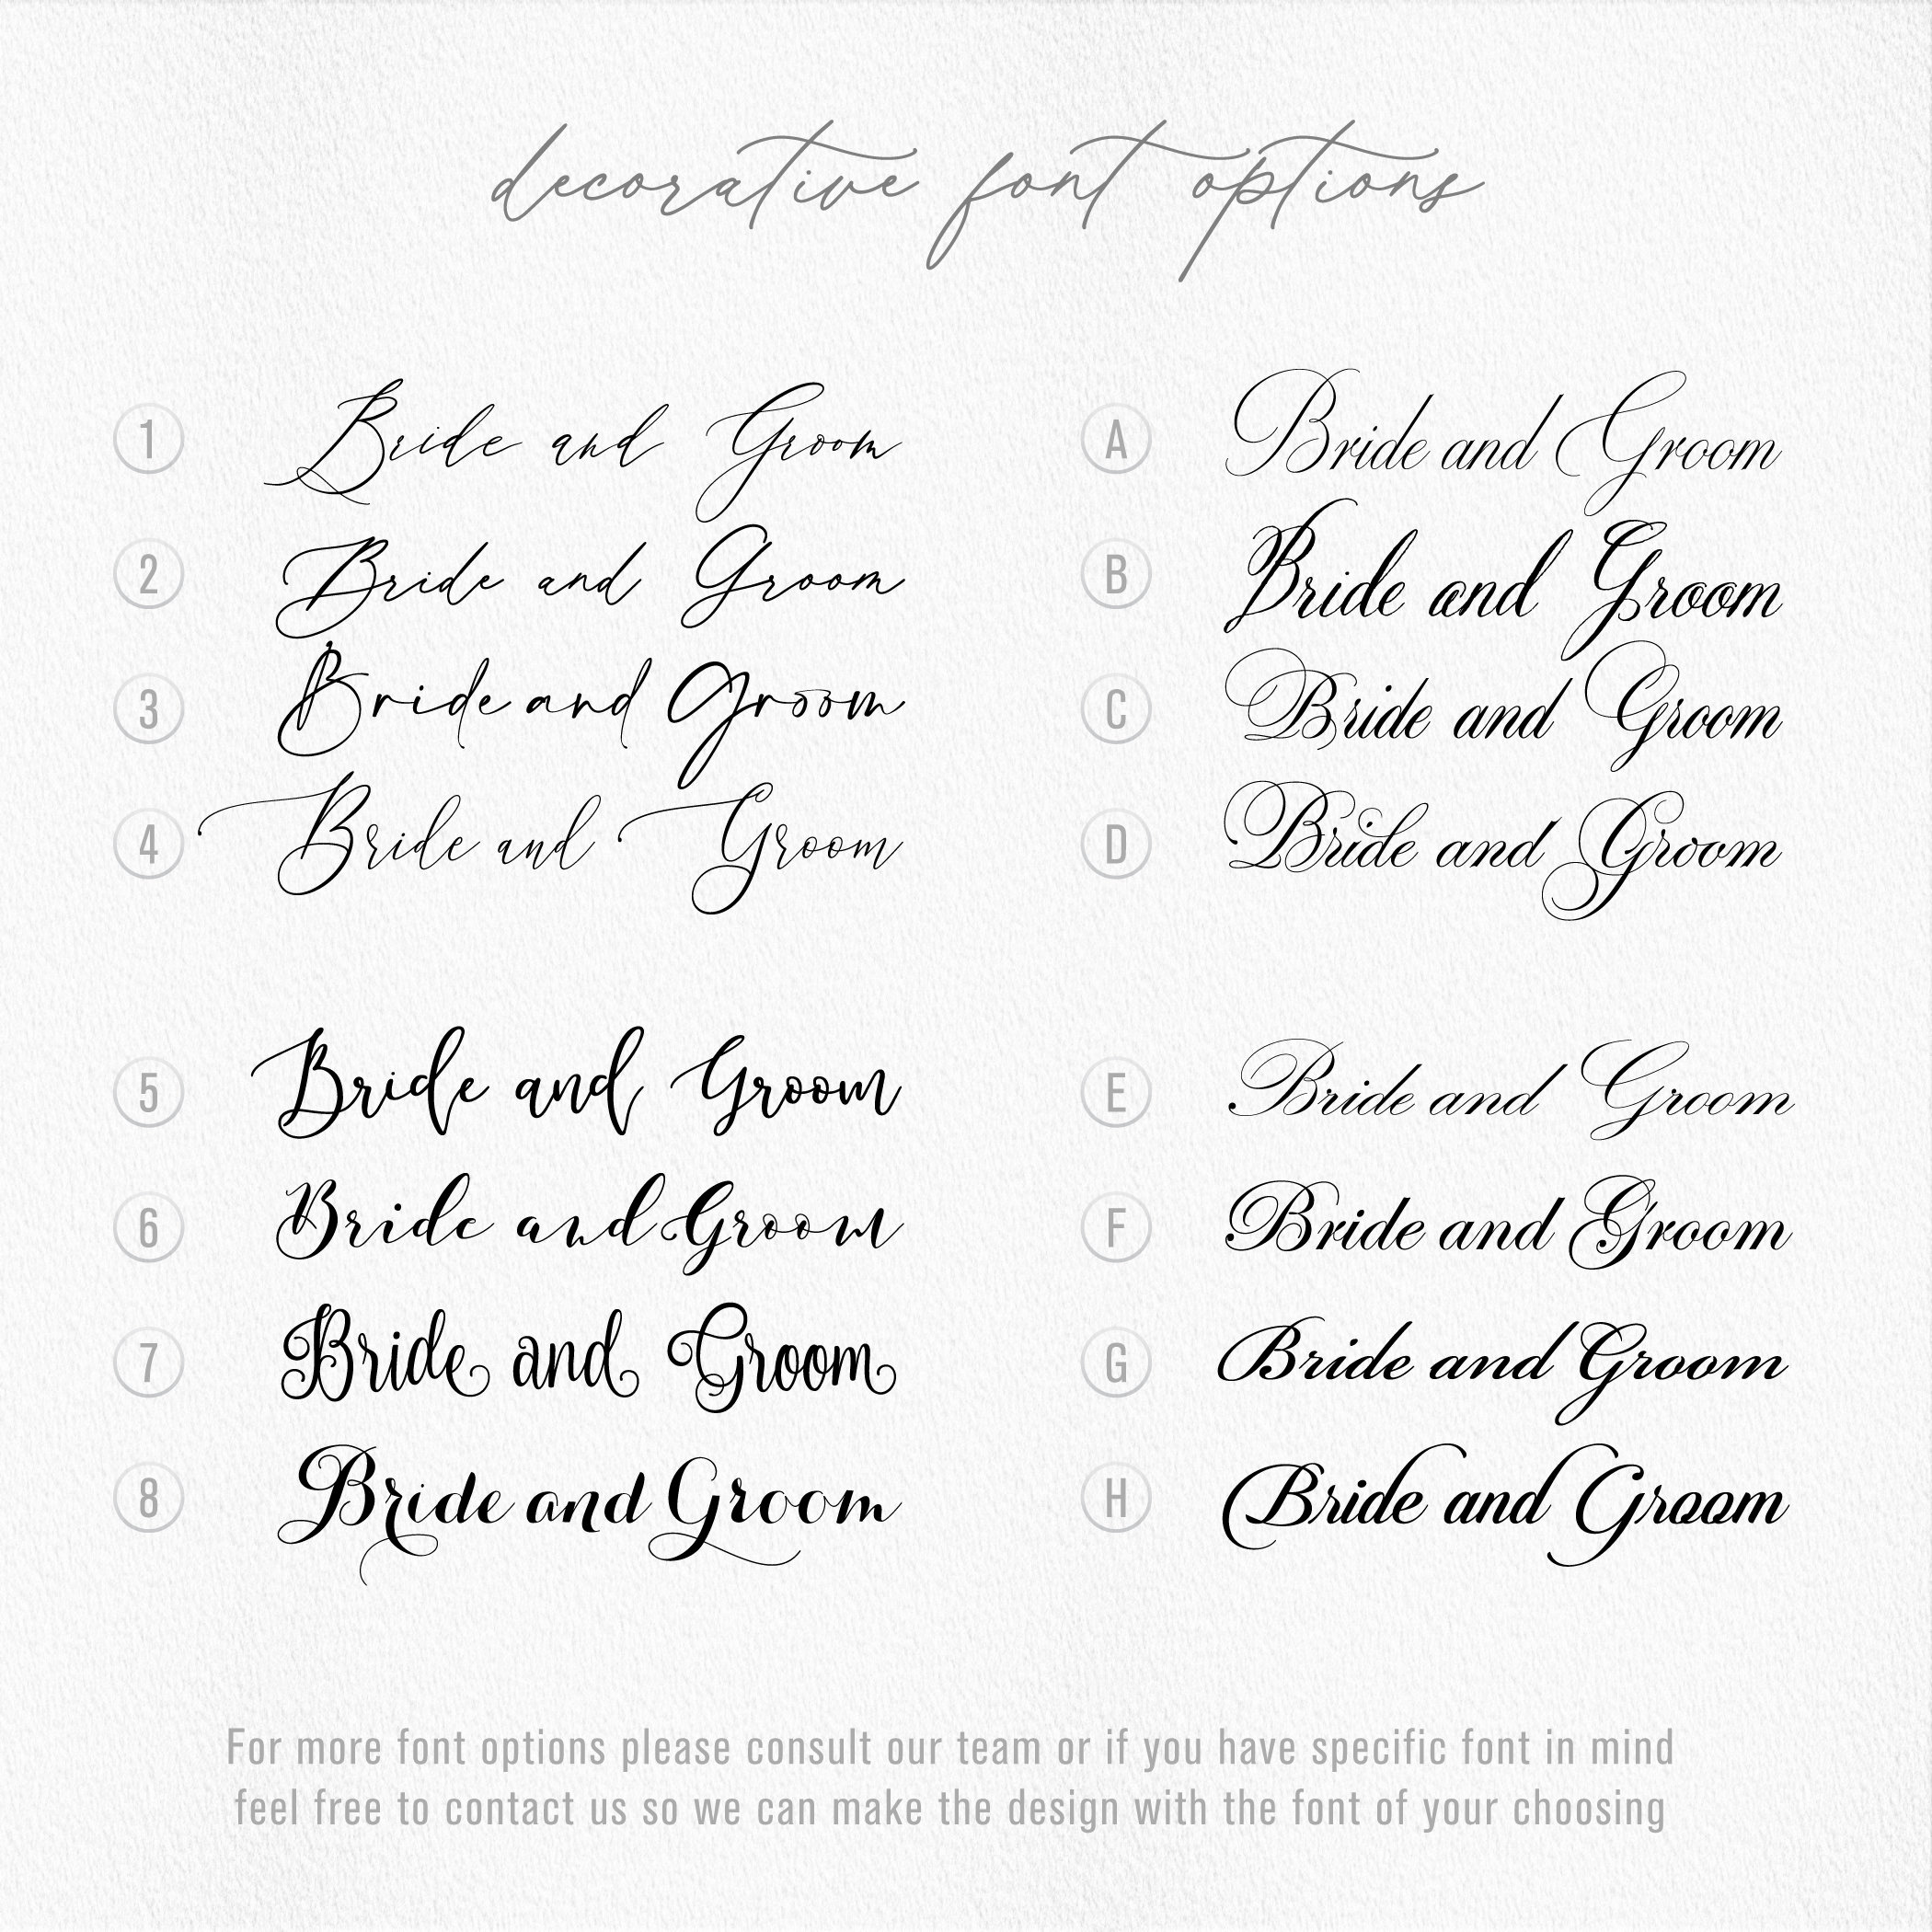 decorative font options
1 Bride and Groom
2 Bride and Groom
3 Bride and Groom
4 Bride and Groom
A Bride and Groom
B Bride and Groom
C Bride and Groom
D Bride and Groom
5 Bride and Groom
6 Bride and Groom
7 Bride and Groom
8 Bride and Groom
E Bride and Groom
F Bride and Groom
G Bride and Groom
H Bride and Groom
For more font options please consult our team or if you have specific font in mind
feel free to contact us so we can make the design with the font of your choosing